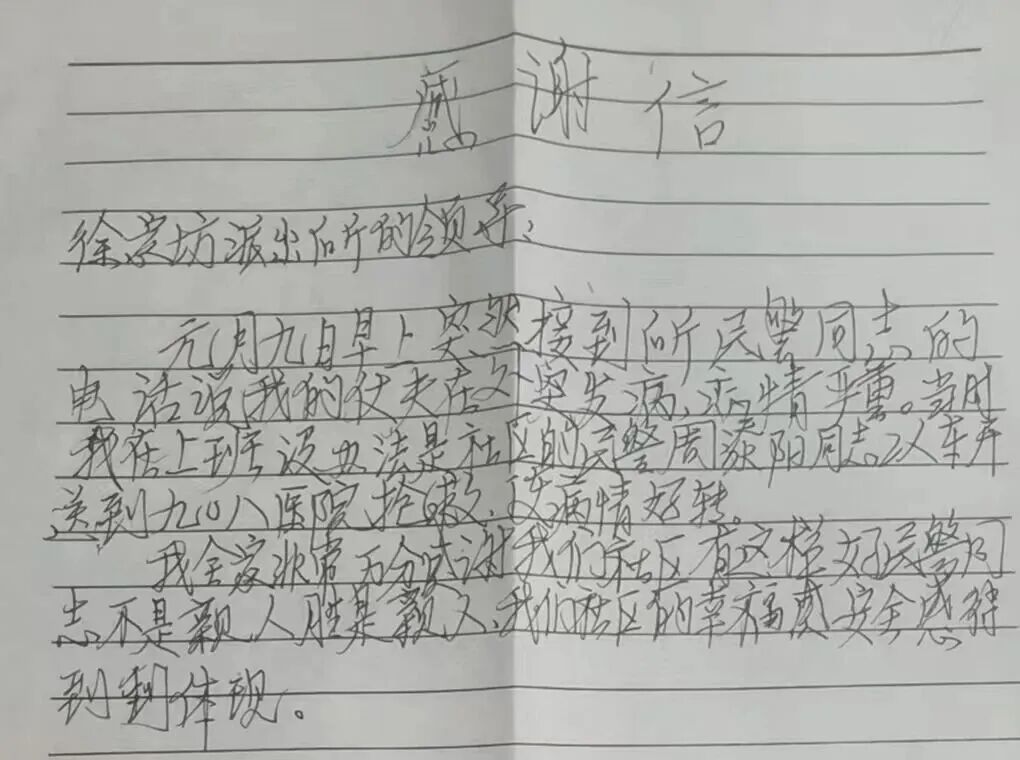 感谢信
徐家坊派出所的领导、
元月九日早上突然接到所民警同志的
电话说我的丈夫在外里发病、病情严重。当时
我在上班没办法是社区的民警周泰阳同志以车
送到九〇八医院抢救、病情好转。
我全家非常万分感谢我们社区有这样好民警同
志不是亲人胜是亲人、我们社区的幸福度安全感得
到体现。